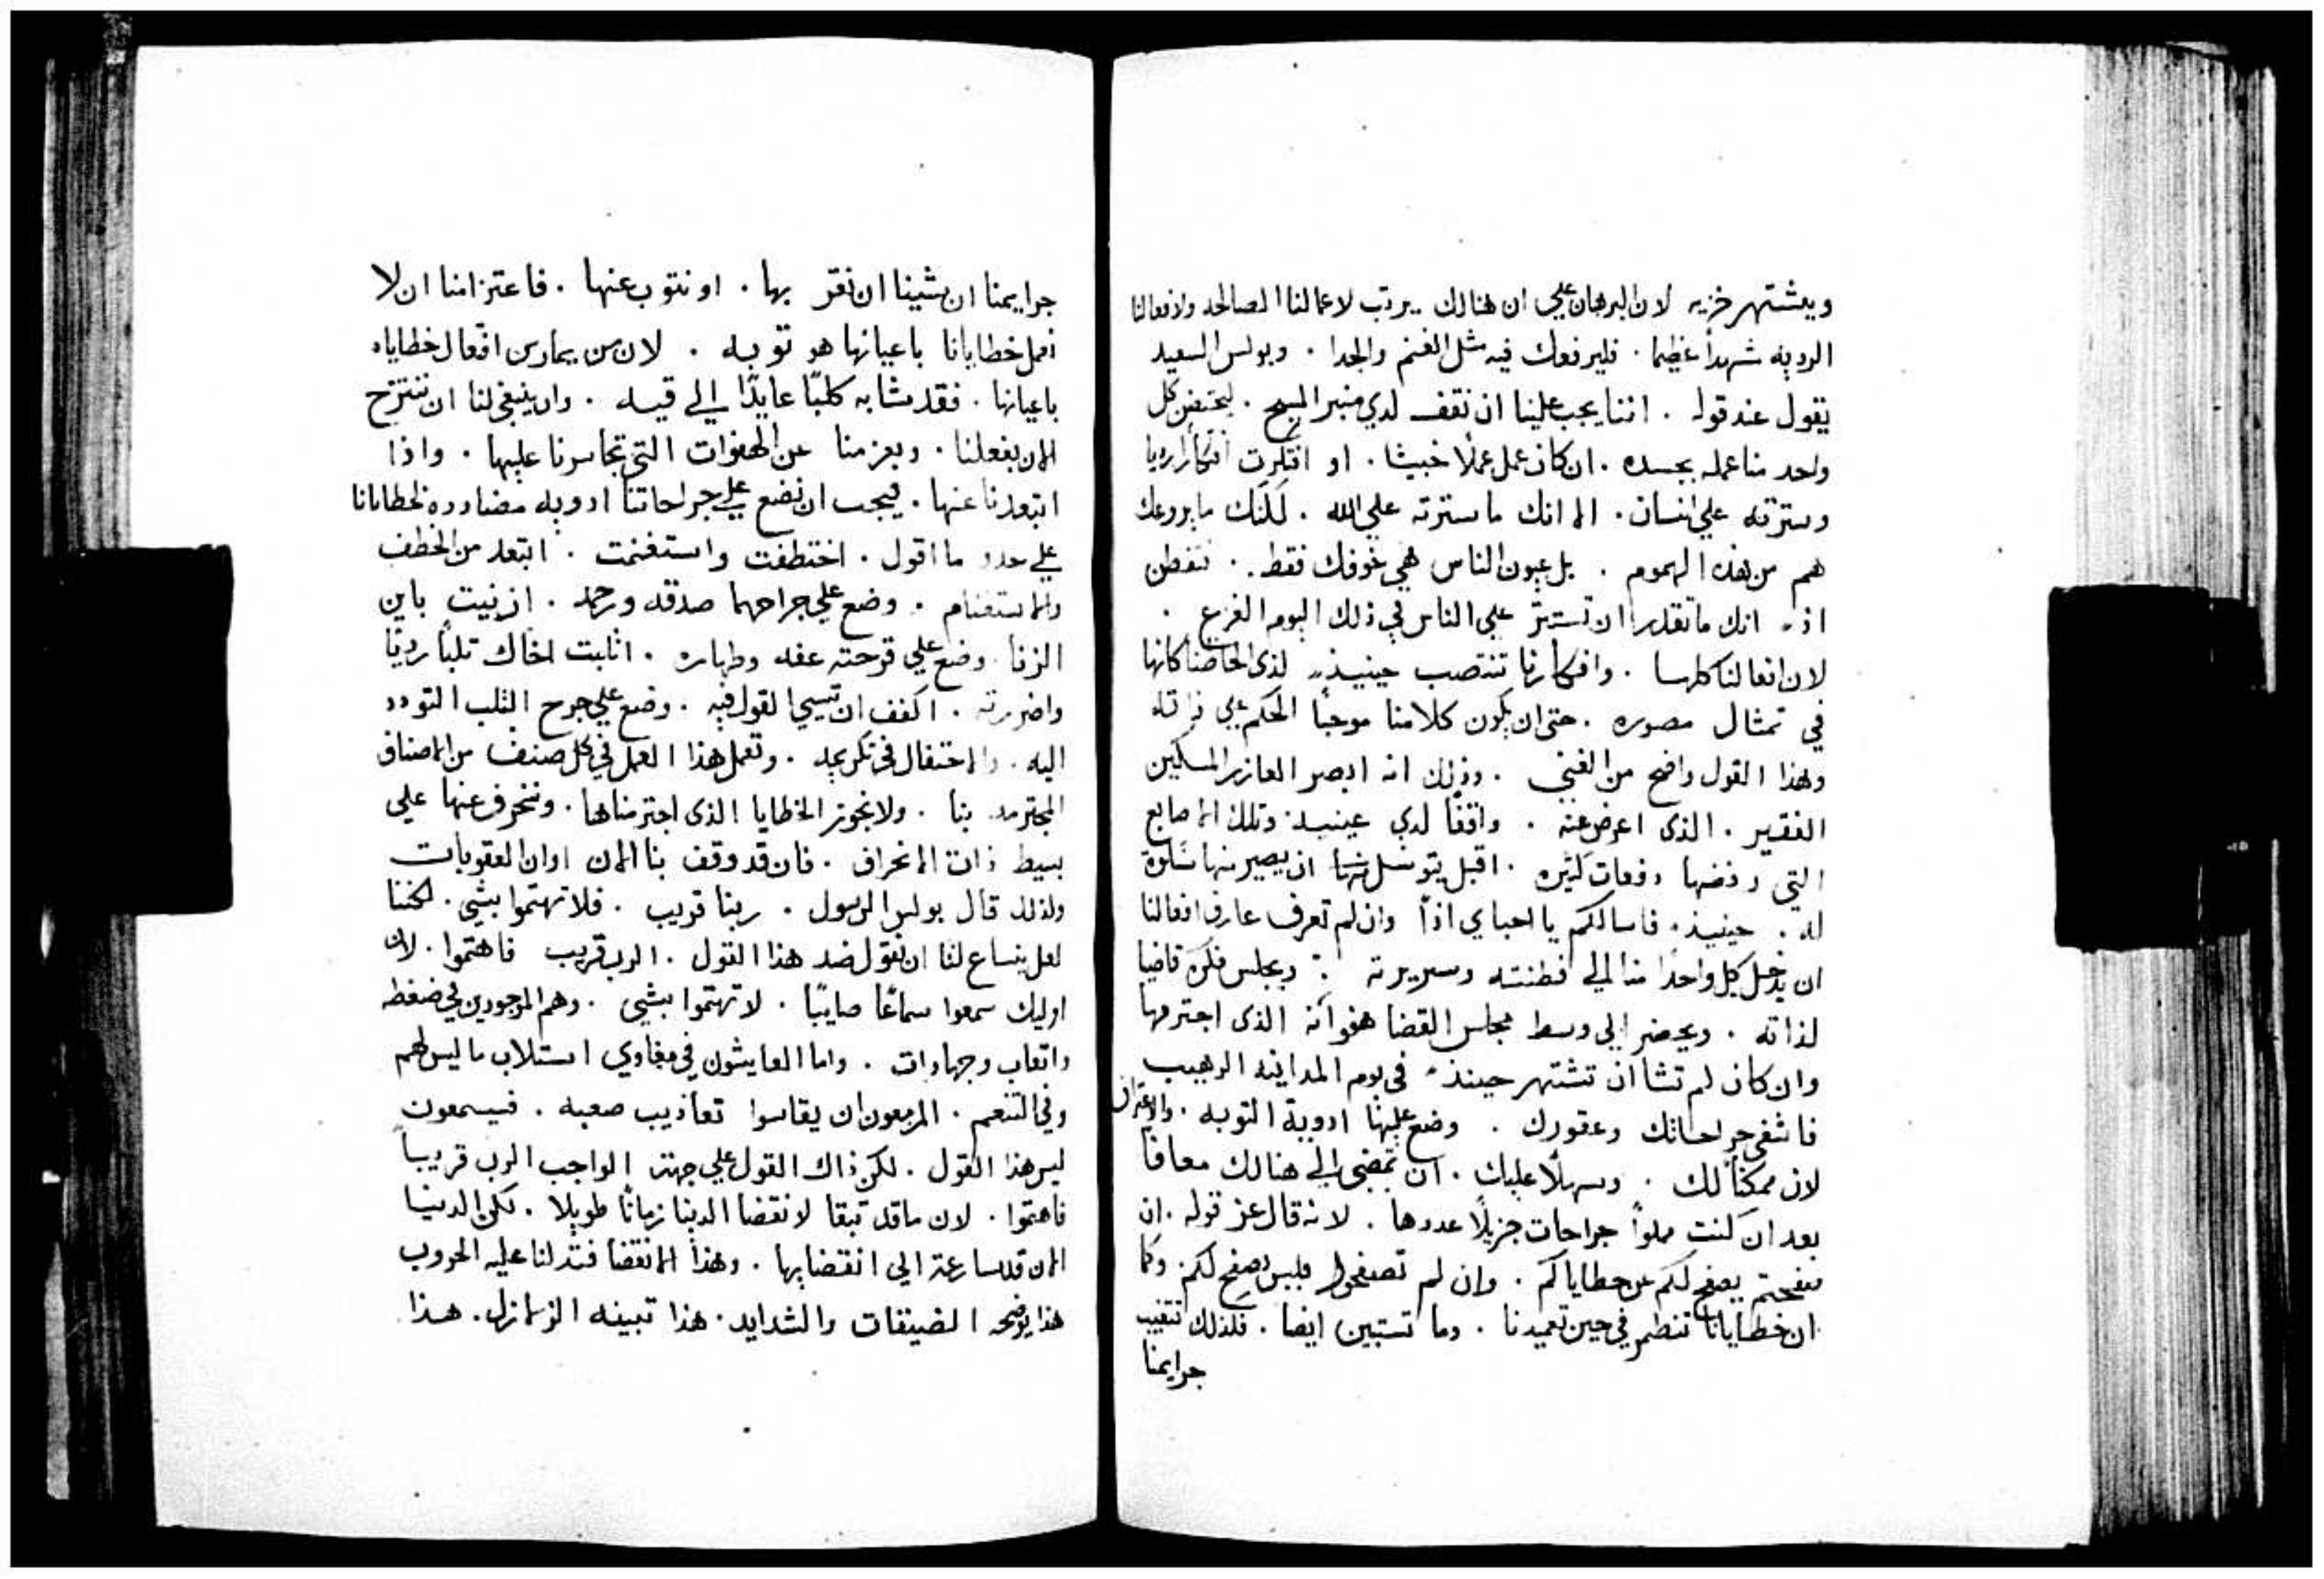 ويشتهر خزيه لان البرهان علي ان هنالك يرتب لاعمالنا الصالحه ولافعالنا
الرديه شهدآ عظيما . فليرفعك فيه مثل الغنم والجدا . وبولس السعيد
يقول عند قوله . اننا يجب علينا ان نقف لدي منبر المسيح . ليحتضن كل
واحد منا عمله بجسده . ان كان عمل عملاً خبيثا . او افتكرت افتكارا رديا
وسترته علي انسان . الا انك ما سترته علي الله . لكنك ما يروعك
هم من هذه الهموم . بل عيون الناس هي خوفك فقط . فتفطن
اذاً انك ما تقدر ان تستتر علي الناس في ذلك اليوم الفزع .
لان افعالنا كلها . وافكارنا تنتصب حينيذٍ لذي الحاضنا كانها
في تمثال مصوره . حتى ان يكون كلامنا موجباً الحكم علي ذاته
وهذا القول واضح من الغني . وذلك انه ابصر العازر المسكين
الفقير . الذى اعرض عنه . واقفاً لدي عينيه . وتلك الاصابع
التي رفضها دفعات كثيره . اقبل يتوسل منها ان يصير منها سلوة
له . حينيذ . فاسالكم يا احباي اذاً وان لم تعرف عارف افعالنا
ان يدخل كل واحداً منا الي فطنته وسريرته . ويجلس فكره قاضيا
لذاته . ويحضر الي وسط مجلس القضا هفوآته الذى اجترمها
وان كان لم تشا ان تشتهر حينذ في يوم المداينه الرهيب
فاشفي جراحاتك وعقورك . وضع عليها ادوية التوبه . والاعتراف
لان ممكناً لك . وسهلاً عليك . ان تمضي الي هنالك معافا
بعد ان كنت مملواً جراحات جزيلاً عددها . لانه قال عز قوله . ان
صفحتم يصفح لكم عن خطاياكم . وان لم تصفحوا فليس يصفح لكم . وكما
ان خطايانا تنطمر في حين تعميدنا . وما تستبين ايضا . فلذلك تتغيب
جرايمنا
جرايمنا ان شينا ان نقر بها . او نتوب عنها . فاعتزامنا ان لا
نعمل خطايانا باعيانها هو توبه . لان من يمارس افعال خطاياه
باعيانها . فقد شابه كلبًا عايدًا الي قيه . وان ينبغي لنا ان ننتزح
الان بفعلنا . وبعزمنا عن الهفوات التي تجاسرنا عليها . واذا
ابتعدنا عنها . فيجب ان نضع علي جراحاتنا ادويه مضادده لخطايانا
علي حدد ما اقول . اختطفت واستغنمت . ابتعد من الخطف
والاستغنام . وضع علي جراحهما صدقه ورحمه . ازنيت باين
الزنا . وضع علي قرحته عفه وطهاره . اثلبت اخاك ثلبًا رديًا
واضررته . اكفف ان تسي القول فيه . وضع علي جرح الثلب التودد
اليه . والاحتفال في تكريمه . وتعمل هذا العمل في كل صنف من الاصناف
المجترمه بنا . ولا نجوز الخطايا الذى اجترمناها . وننحرف عنها علي
بسيط ذات الانحراف . فان قد وقف بنا الان اوان العقوبات
ولذلك قال بولس الرسول . ربنا قريب . فلا تهتموا بشي . لكننا
لعل ينساغ لنا ان نقول ضد هذا القول . الرب قريب فاهتموا . لان
اوليك سمعوا سماعًا صايبًا . لا تهتموا بشي . وهم الموجودين في ضغطه
واتعاب وجهادات . واما العايشون في مغاوي استلاب ما ليس لهم
وفي التنعم . المزمعون ان يقاسوا تعاذيب صعبه . فيسمعون
ليس هذا القول . لكن ذاك القول علي جهته الواجب الرب قريباً
فاهتموا . لان ما قد تبقا لانقضا الدنيا زمانًا طويلا . لكن الدنيا
الان قد سارعت الي انقضايها . وهذا الانقضا فتدلنا عليه الحروب
هذا يوضحه الضيقات والشدايد . هذا تبينه الزلازل . هذا